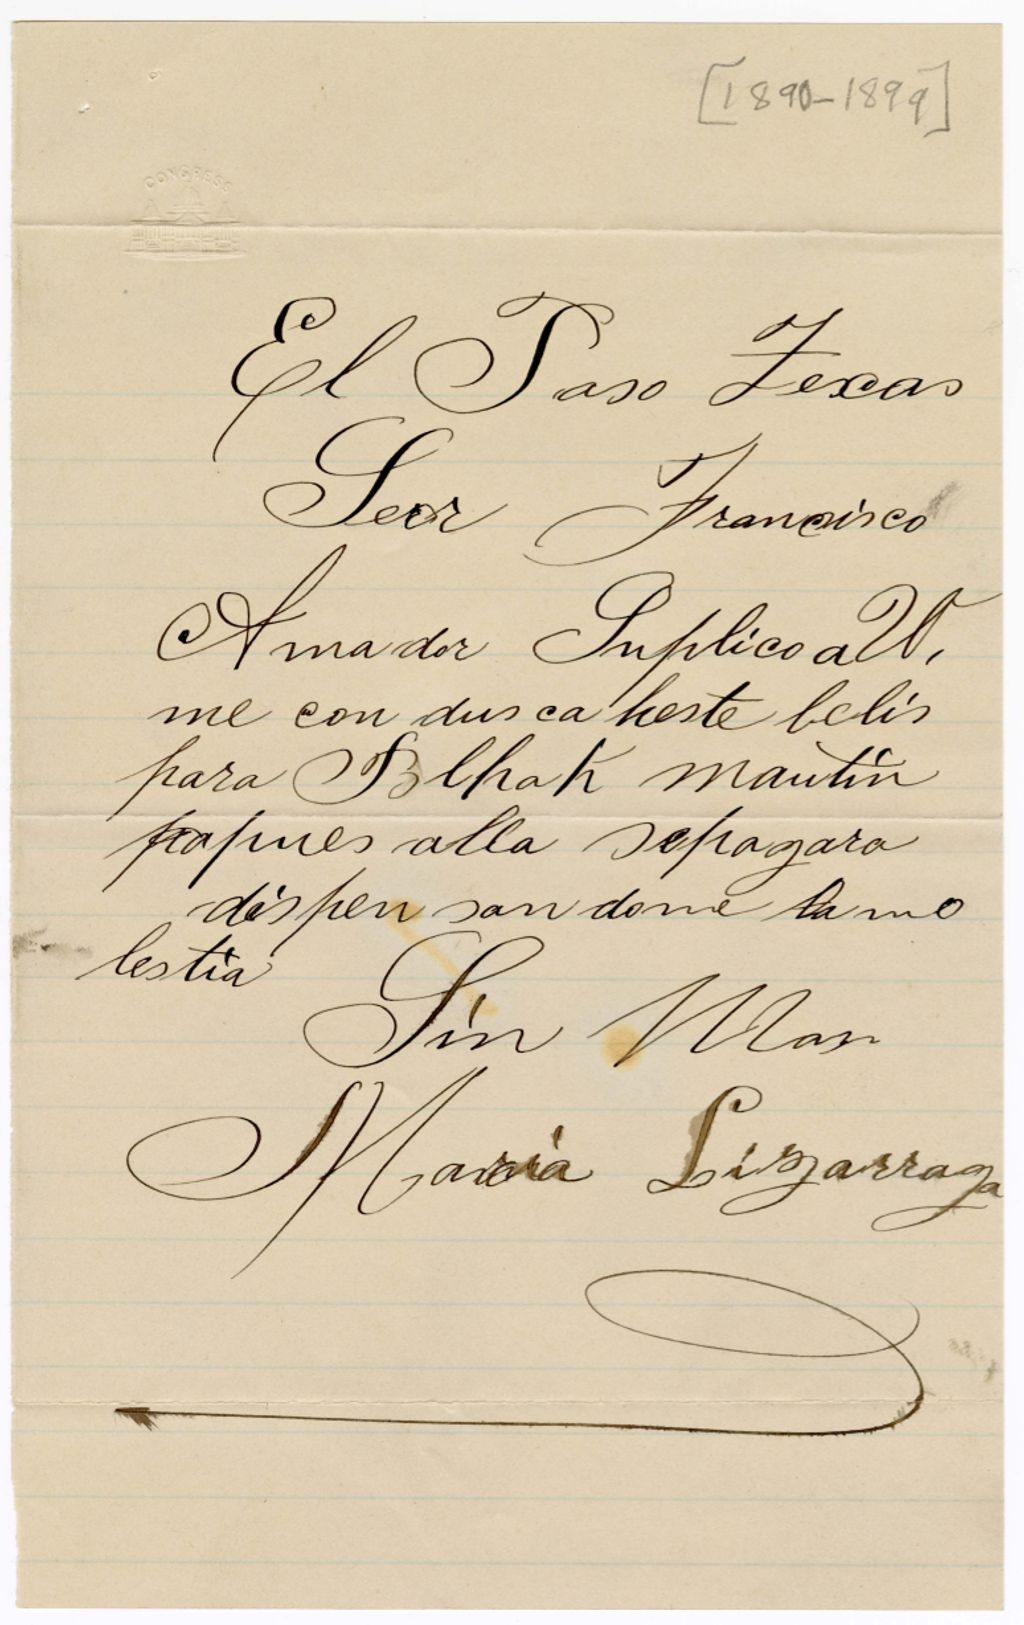 [1890-1899]
CONGRESS
El Paso Texas
Seor Francisco
Amador Suplico a V,
me con dus ca heste belis
para Blkak mautin
papues alla sepagara
dispen san dome la mo
lestia
Sin Mas
Maria Lizarraga